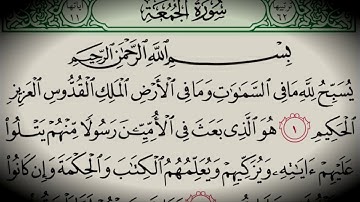 سُورَةُ الجُمُعَةِ
بِسْمِ اللَّهِ الرَّحْمَٰنِ الرَّحِيمِ
يُسَبِّحُ لِلَّهِ مَا فِي السَّمَٰوَٰتِ وَمَا فِي الْأَرْضِ الْمَلِكِ الْقُدُّوسِ الْعَزِيزِ
الْحَكِيمِ ١ هُوَ الَّذِي بَعَثَ فِي الْأُمِّيِّينَ رَسُولًا مِنْهُمْ يَتْلُوا
عَلَيْهِمْ ءَايَٰتِهِ وَيُزَكِّيهِمْ وَيُعَلِّمُهُمُ الْكِتَٰبَ وَالْحِكْمَةَ وَإِن كَانُوا